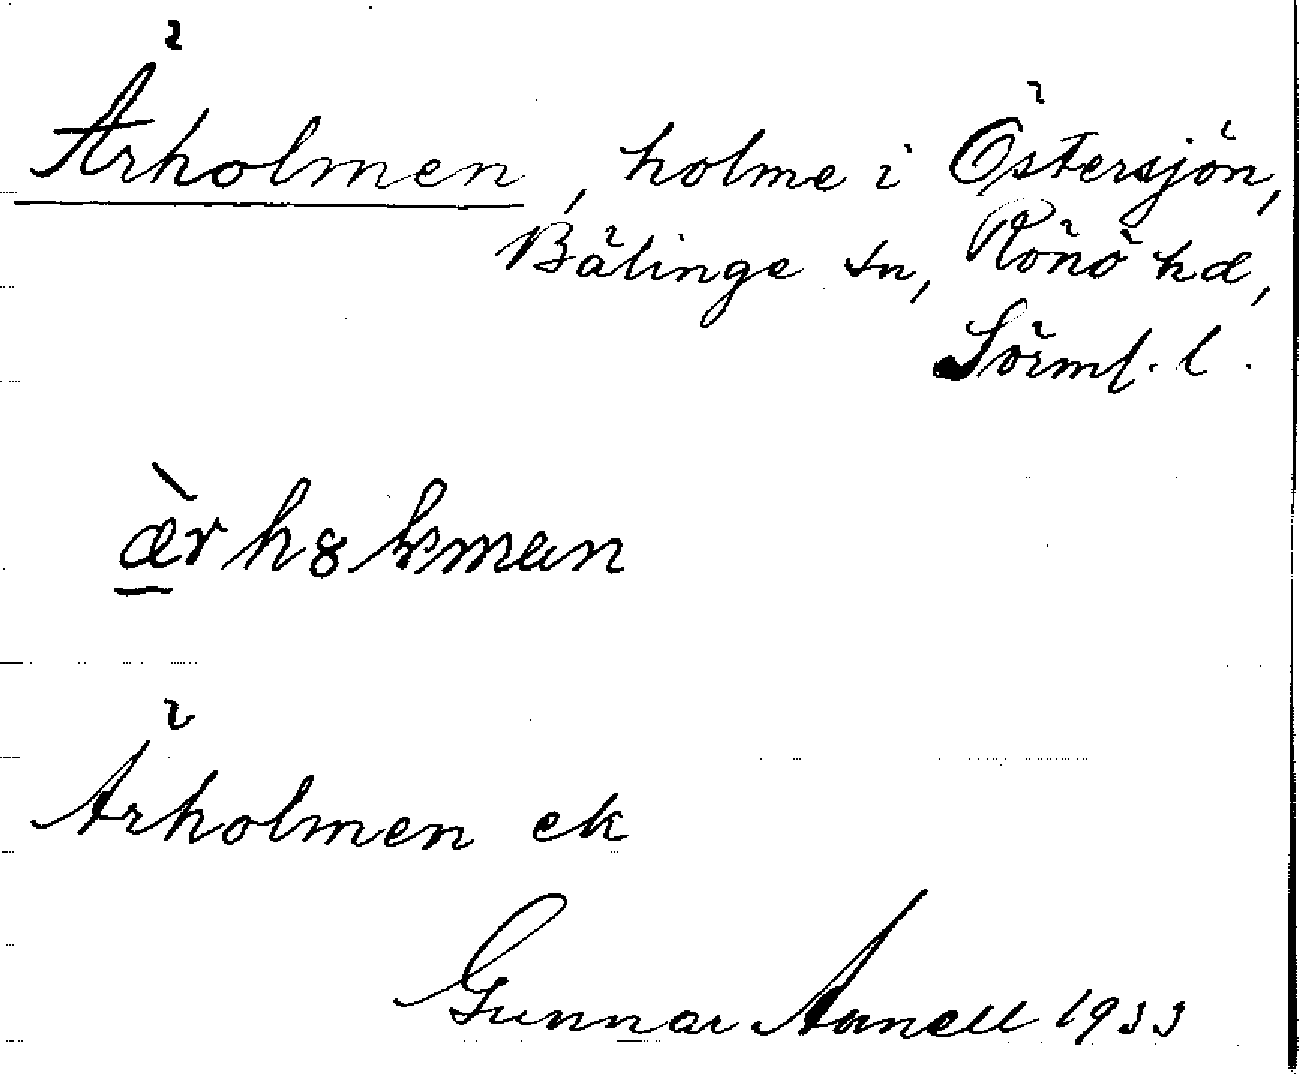 Ärholmen, holme i Östersjön,
Bälinge sn, Rönö hd,
Sörml. l.
Ärholmen ek
Gunnar Annell 1933